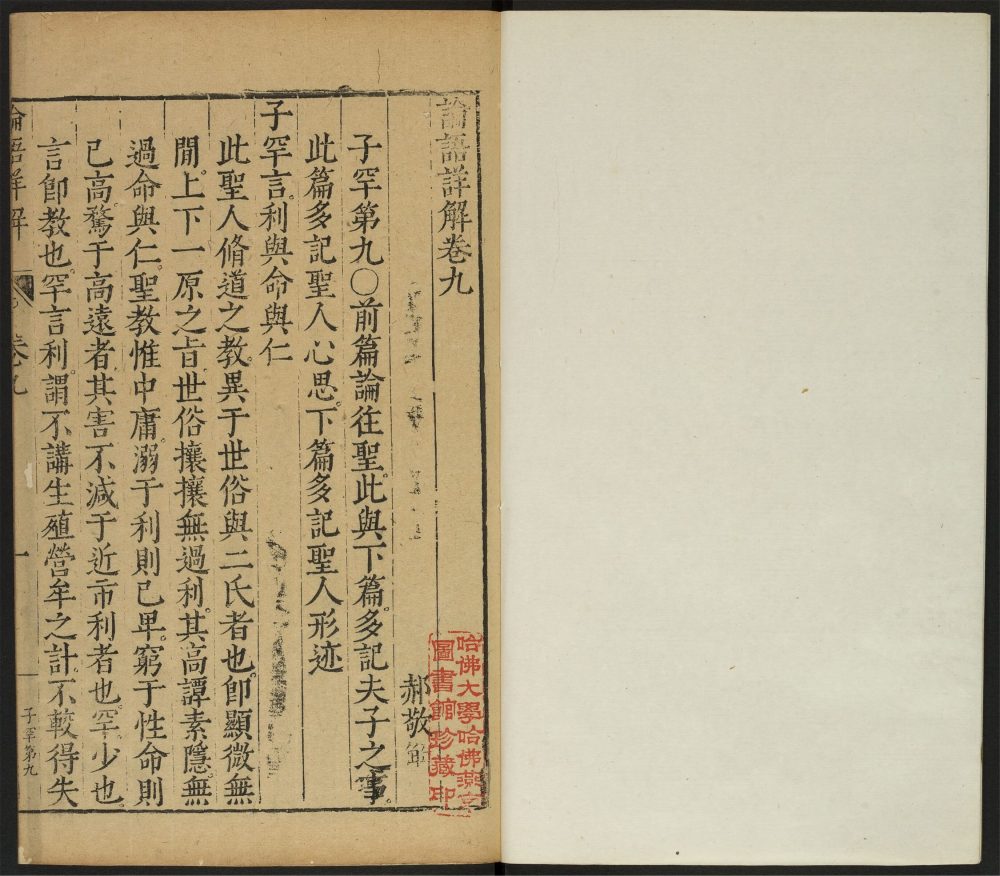 論語詳解卷九
郝敬解
子罕第九○前篇論往聖此與下篇多記夫子之事
此篇多記聖人心思下篇多記聖人形迹
子罕言利與命與仁
此聖人脩道之教異于世俗與二氏者也卽顯微無
閒上下一原之旨世俗攘攘無過利其高譚素隱無
過命與仁聖教惟中庸溺于利則已卑窮于性命則
已高騖于高遠者其害不減于近市利者也罕少也
言卽教也罕言利謂不講生殖營牟之計不較得失
論語詳解
卷九
一
子罕第九
哈佛大學哈佛燕京
圖書館珍藏印